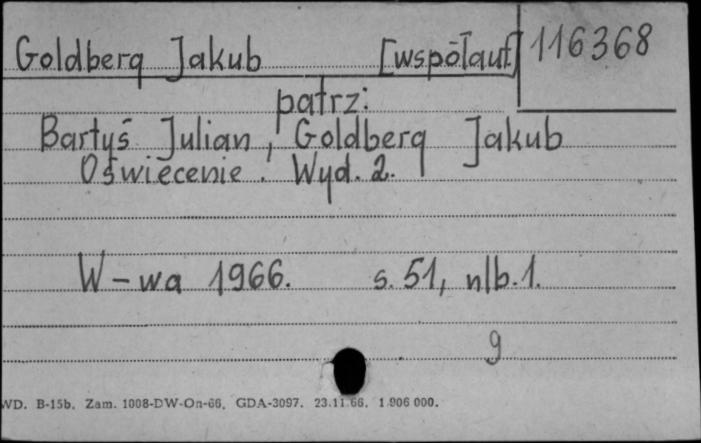 Goldberg Jakub [współaut] 116368
patrz:
Bartyś Julian, Goldberg Jakub
Oświecenie. Wyd. 2.
W-wa 1966. s. 51, nlb. 1.
g
WD. B-15b. Zam. 1008-DW-On-66. GDA-3097. 23.11.66. 1.906 000.